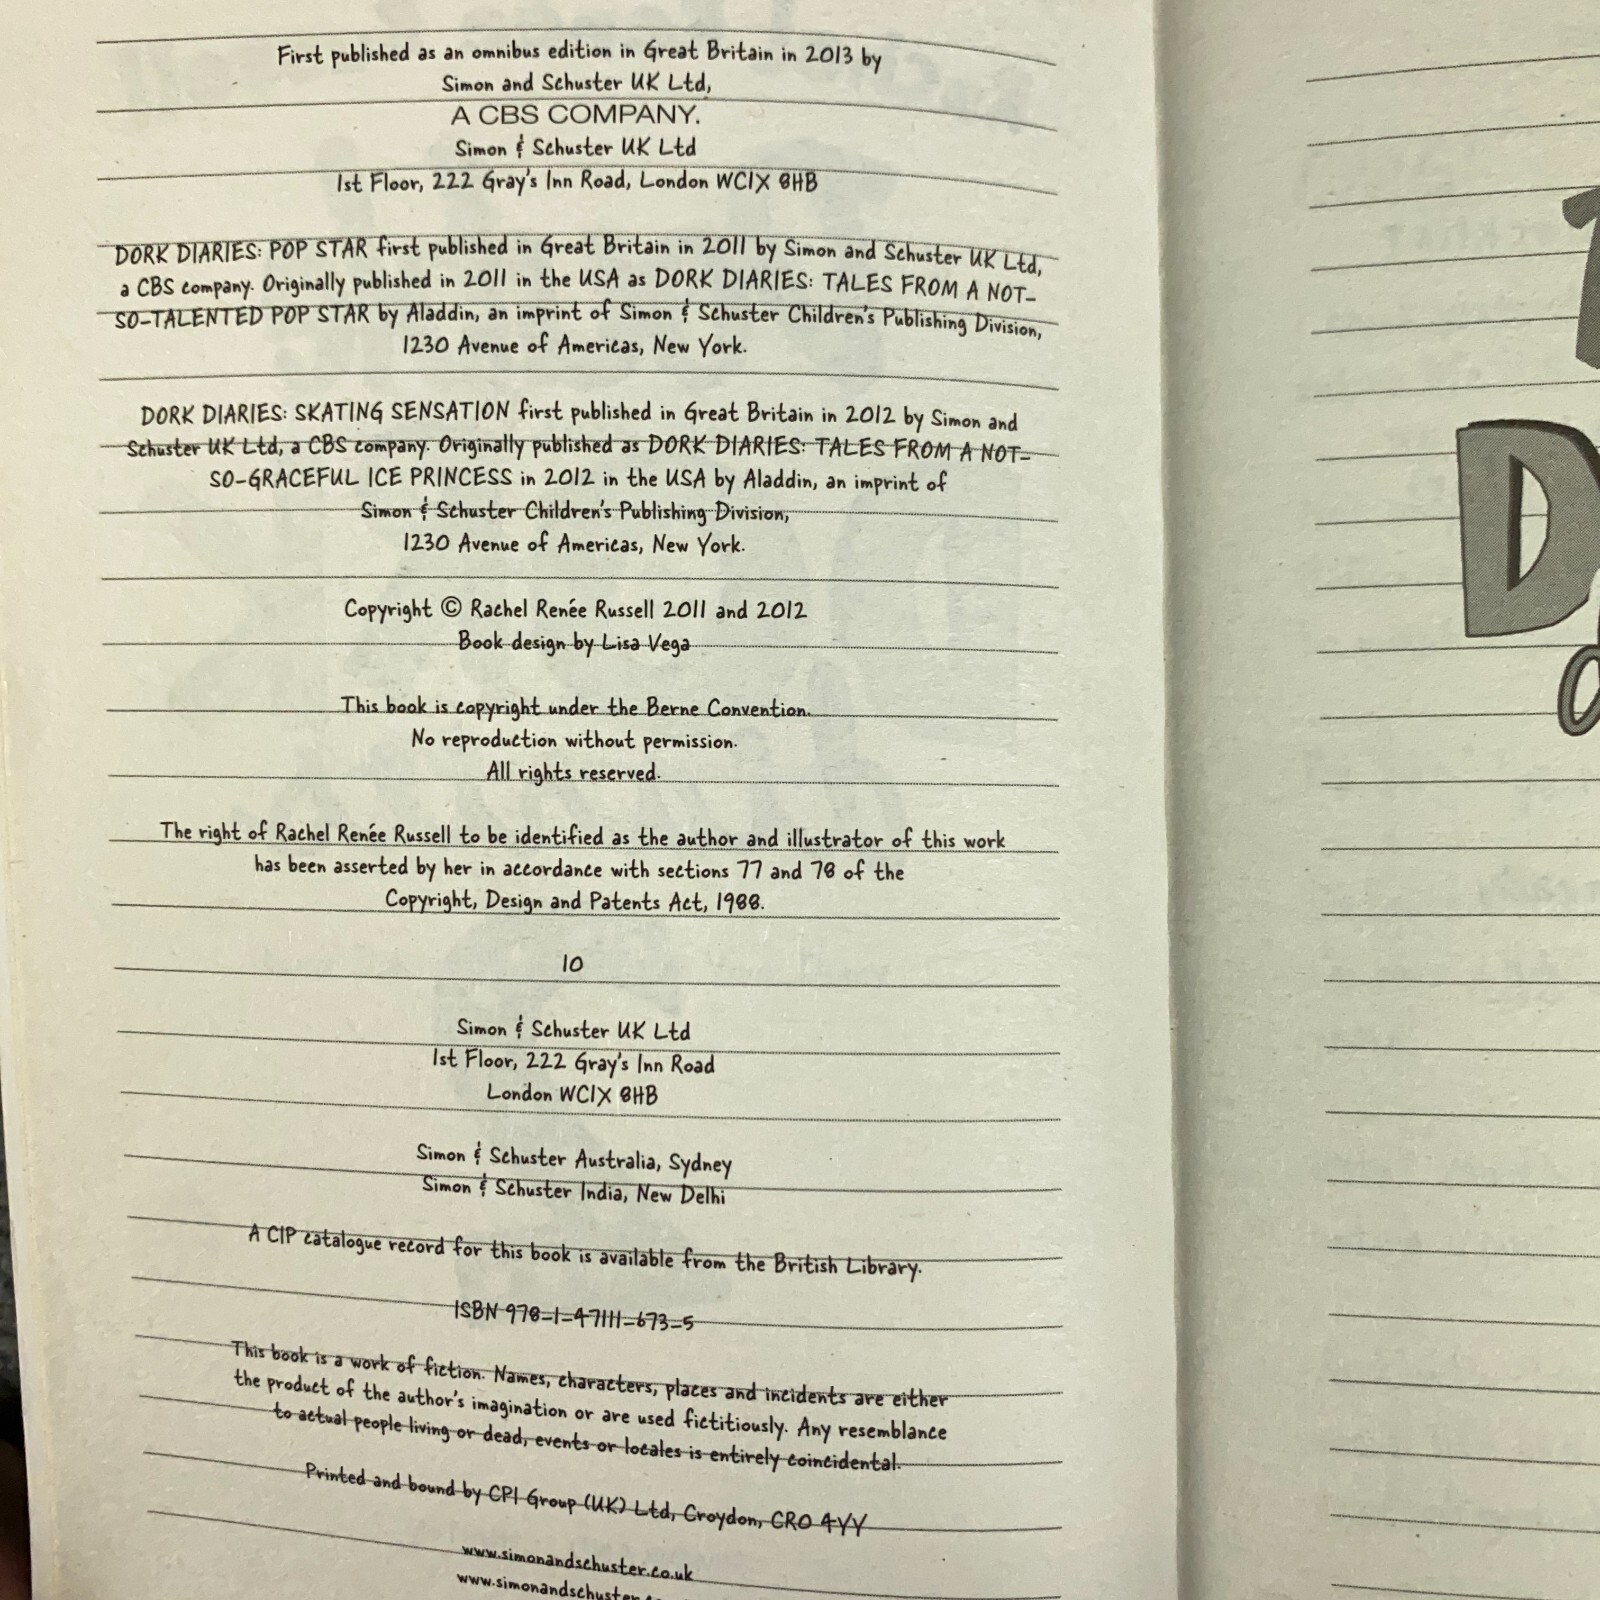 First published as an omnibus edition in Great Britain in 2013 by
Simon and Schuster UK Ltd,
A CBS COMPANY.
Simon & Schuster UK Ltd
1st Floor, 222 Gray's Inn Road, London WC1X 8HB
DORK DIARIES: POP STAR first published in Great Britain in 2011 by Simon and Schuster UK Ltd,
a CBS company. Originally published in 2011 in the USA as DORK DIARIES: TALES FROM A NOT-
SO-TALENTED POP STAR by Aladdin, an imprint of Simon & Schuster Children's Publishing Division,
1230 Avenue of Americas, New York.
DORK DIARIES: SKATING SENSATION first published in Great Britain in 2012 by Simon and
Schuster UK Ltd, a CBS company. Originally published as DORK DIARIES: TALES FROM A NOT-
SO-GRACEFUL ICE PRINCESS in 2012 in the USA by Aladdin, an imprint of
Simon & Schuster Children's Publishing Division,
1230 Avenue of Americas, New York.
Copyright © Rachel Renée Russell 2011 and 2012
Book design by Lisa Vega
This book is copyright under the Berne Convention.
No reproduction without permission.
All rights reserved.
The right of Rachel Renée Russell to be identified as the author and illustrator of this work
has been asserted by her in accordance with sections 77 and 78 of the
Copyright, Design and Patents Act, 1988.
10
Simon & Schuster UK Ltd
1st Floor, 222 Gray's Inn Road
London WC1X 8HB
Simon & Schuster Australia, Sydney
Simon & Schuster India, New Delhi
A CIP catalogue record for this book is available from the British Library.
ISBN 978-1-47111-673-5
This book is a work of fiction. Names, characters, places and incidents are either
the product of the author's imagination or are used fictitiously. Any resemblance
to actual people living or dead, events or locales is entirely coincidental.
Printed and bound by CPI Group (UK) Ltd, Croydon, CR0 4YY
www.simonandschuster.co.uk
www.simonandschuster
D